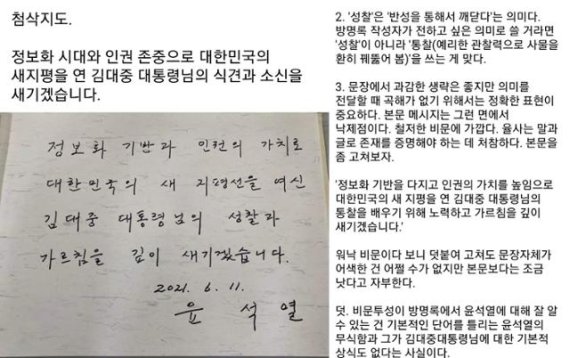 첨삭지도.
정보화 시대와 인권 존중으로 대한민국의
새지평을 연 김대중 대통령님의 식견과 소신을
새기겠습니다.
정보화 기반과 인권의 가치로
대한민국의 새 지평선을 여신
김대중 대통령님의 성찰과
가르침을 깊이 새기겠습니다.
2021. 6. 11.
윤 석 열
2. '성찰'은 '반성을 통해서 깨닫다'는 의미다.
방명록 작성자가 전하고 싶은 의미로 쓸 거라면
'성찰'이 아니라 '통찰(예리한 관찰력으로 사물을
환히 꿰뚫어 봄)'을 쓰는 게 맞다.
3. 문장에서 과감한 생략은 좋지만 의미를
전달할 때 곡해가 없기 위해서는 정확한 표현이
중요하다. 본문 메시지는 그런 면에서
낙제점이다. 철저한 비문에 가깝다. 율사는 말과
글로 존재를 증명해야 하는 데 처참하다. 본문을
좀 고쳐보자.
'정보화 기반을 다지고 인권의 가치를 높임으로
대한민국의 새 지평을 연 김대중 대통령님의
통찰을 배우기 위해 노력하고 가르침을 깊이
새기겠습니다.'
워낙 비문이다 보니 덧붙여 고쳐도 문장자체가
어색한 건 어쩔 수가 없지만 본문보다는 조금
낫다고 자부한다.
덧. 비문투성이 방명록에서 윤석열에 대해 잘 알
수 있는 건 기본적인 단어를 틀리는 윤석열의
무식함과 그가 김대중대통령님에 대한 기본적
상식도 없다는 사실이다.